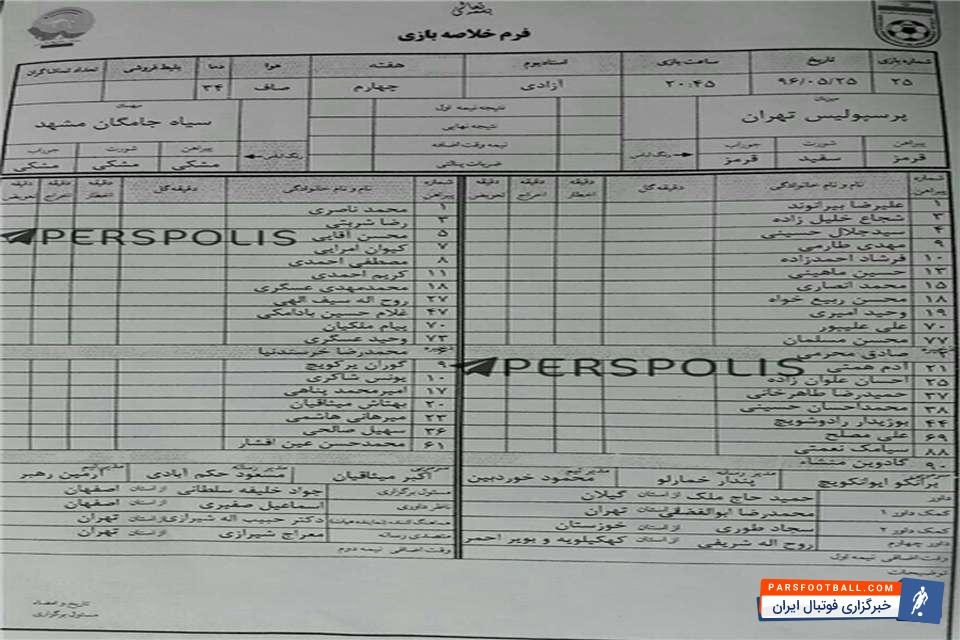 بسمه تعالی
فرم خلاصه بازی
شماره بازی تاریخ ساعت بازی استادیوم هفته هوا دما بلیط فروشی تعداد تماشاگران
۲۵ ۹۶/۰۵/۲۵ ۲۰:۴۵ آزادی چهارم صاف ۳۴
میزبان
پرسپولیس تهران
پیراهن شورت جوراب رنگ لباس
قرمز سفید قرمز
نتیجه نیمه اول
نتیجه نهایی
نیمه وقت اضافه
ضربات پنالتی
میهمان
سیاه جامگان مشهد
پیراهن شورت جوراب رنگ لباس
مشکی مشکی مشکی
شماره پیراهن نام و نام خانوادگی دقیقه گل دقیقه اخطار دقیقه اخراج دقیقه تعویض
۱ علیرضا بیرانوند
۳ شجاع خلیل زاده
۴ سیدجلال حسینی
۹ مهدی طارمی
۱۰ فرشاد احمدزاده
۱۳ حسین ماهینی
۱۵ محمد انصاری
۱۸ محسن ربیع خواه
۱۹ وحید امیری
۷۰ علی علیپور
۷۷ محسن مسلمان
صادق محرمی
۲۱ آدم همتی
۲۵ احسان علوان زاده
۳۷ حمیدرضا طاهرخانی
۳۸ محمداحسان حسینی
۴۴ بوزیدار رادوشویچ
۶۹ علی مصلح
۸۸ سیامک نعمتی
۹۰ گادوین منشاء
شماره پیراهن نام و نام خانوادگی دقیقه گل دقیقه اخطار دقیقه اخراج دقیقه تعویض
۱ محمد ناصری
۳ رضا شربتی
۵ محسن آقایی
۷ کیوان امرایی
۸ مصطفی احمدی
۱۱ کریم احمدی
۱۸ محمدمهدی عسگری
۲۷ روح اله سیف الهی
۴۷ غلام حسین بادامکی
۷۰ پیام ملکیان
۷۳ وحید عسگری
۶ محمدرضا خرسندنیا
۹ گوران یرکویچ
۱۰ یونس شاکری
۱۷ امیرمحمد پناهی
۲۰ بهتاش میثاقیان
۲۳ میرهانی هاشمی
۳۶ سهیل صالحی
۶۱ محمدحسن عین افشار
PERSPOLIS
PERSPOLIS
برانکو ایوانکویچ مدیر رسانه پندار خمارلو مدیر تیم محمود خوردبین
سرمربی اکبر میثاقیان مدیر رسانه مسعود حکم آبادی مدیر تیم آرمین رهبر
داور حمید حاج ملک از استان گیلان
کمک داور ۱ محمدرضا ابوالفضلی از استان تهران
کمک داور ۲ سجاد طوری از استان خوزستان
داور چهارم روح اله شریفی از استان کهکیلویه و بویر احمر
وقت اضافی نیمه اول
مسئول برگزاری جواد خلیفه سلطانی از استان اصفهان
ناظر داوری اسماعیل صفیری از استان اصفهان
دکتر حبیب اله شیرازی از استان تهران
متصدی رسانه معراج شیرازی از استان تهران
وقت اضافی نیمه دوم
توضیحات
تاریخ و امضاء
مسئول برگزاری
PARSFOOTBALL.COM
خبرگزاری فوتبال ایران